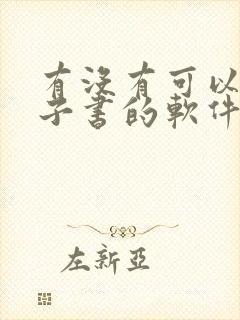 有沒有可以
子書的軟件
左新亞